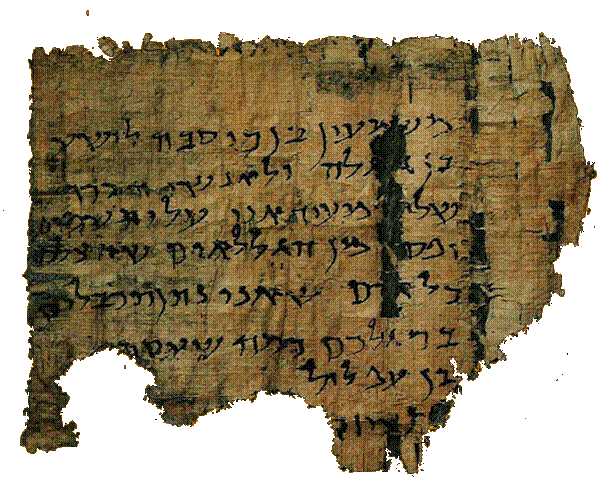 משמעון בן כוסבה לישוע
בן גלגלה ולאנשי הכרך
שלום מעיד אני עלי תשמים
יפס מן הגללאים שהצלכם
כל אדם שאני נותן תכבלים
ברגלכם כמה שעסתי
לבן עפלול